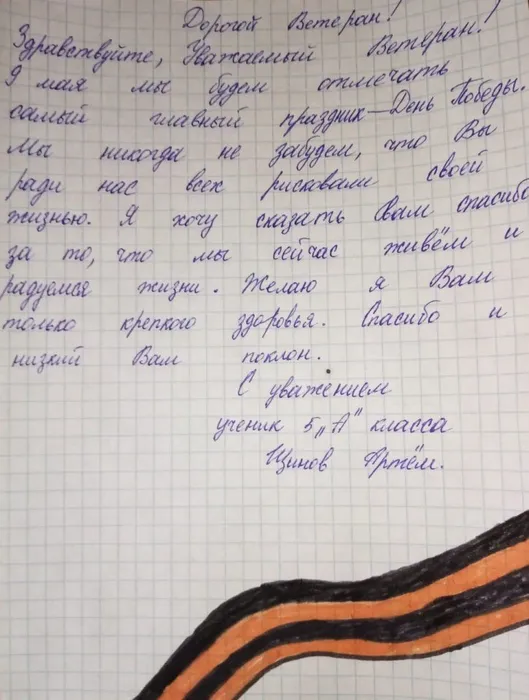 Дорогой Ветеран!
Здравствуйте, Уважаемый Ветеран!
9 мая мы будем отмечать
самый главный праздник—День Победы.
Мы никогда не забудем, что Вы
ради нас всех рисковали своей
жизнью. Я хочу сказать Вам спасибо
за то, что мы сейчас живём и
радуемся жизни. Желаю я Вам
только крепкого здоровья. Спасибо и
низкий Вам поклон.
С уважением
ученик 5 „А" класса
Щинов Артём.